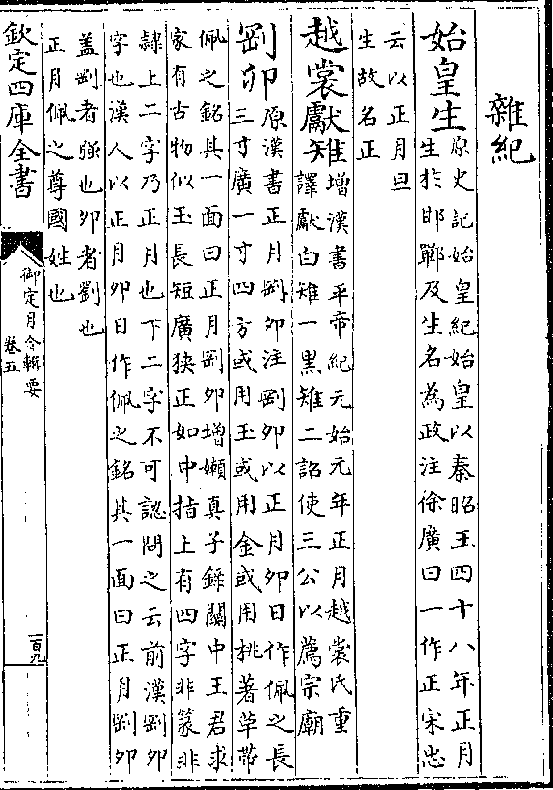 雜紀
始皇生
原史記始皇紀始皇以秦昭王四十八年正月
生於邯鄲及生名為政注徐廣曰一作正宋忠
云以正月旦
生故名正
越裳獻雉
增漢書平帝紀元始元年正月越裳氏重
譯獻白雉一黑雉二詔使三公以薦宗廟
剛卯
原漢書正月剛卯注剛卯以正月卯日作佩之長
三寸廣一寸四方或用玉或用金或用桃著草帶
佩之銘其一面曰正月剛卯增嬾真子錄關中王君求
家有古物似玉長短廣狹正如中指上有四字非篆非
隸上二字乃正月也下二字不可認問之云前漢剛卯
字也漢人以正月卯日作佩之銘其一面曰正月剛卯
盖剛者强也卯者劉也
正月佩之尊國姓也
欽定四庫全書
御定月令輯要
卷五
一百九